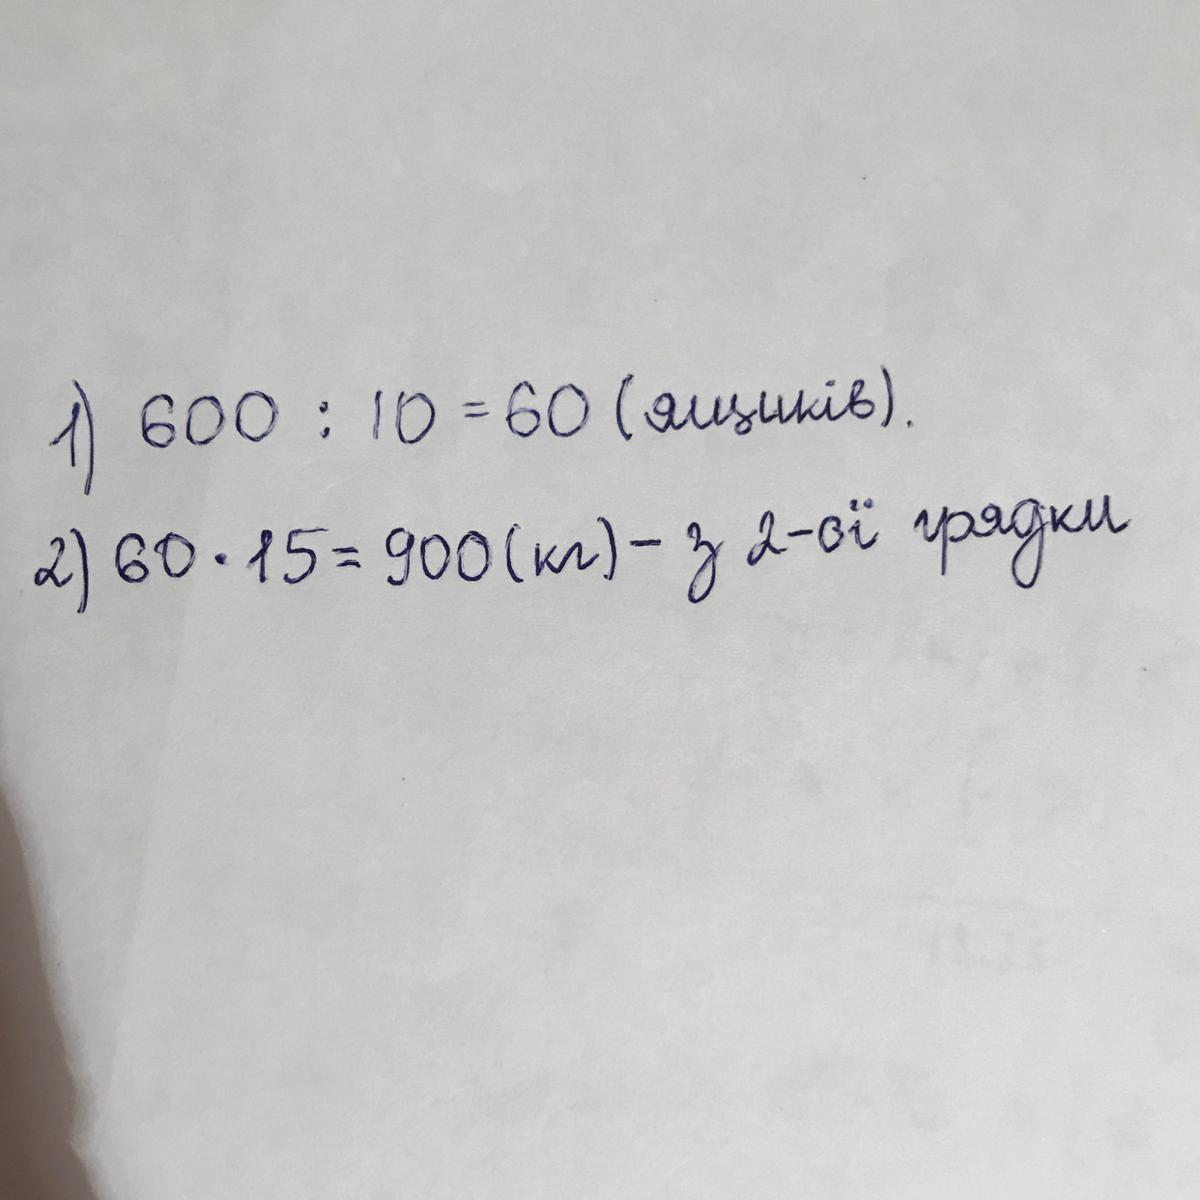 1) 600 : 10 = 60 (ящиків).
2) 60 · 15 = 900 (кг) – з 2-ої грядки